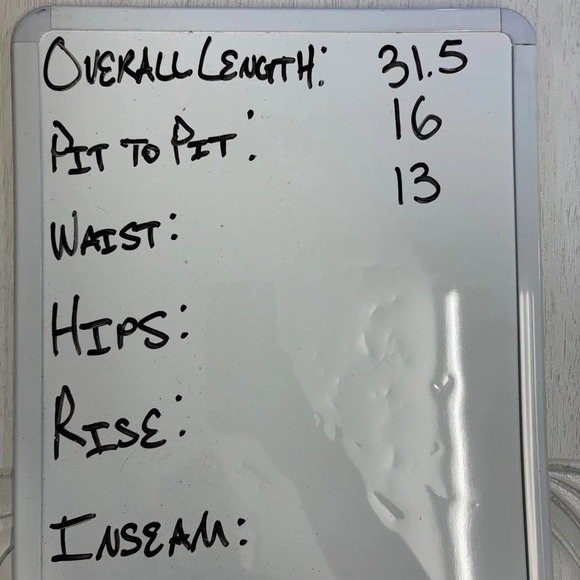 OVERALL LENGTH: 31.5
PIT TO PIT: 16
WAIST: 13
HIPS:
RISE:
INSEAM: